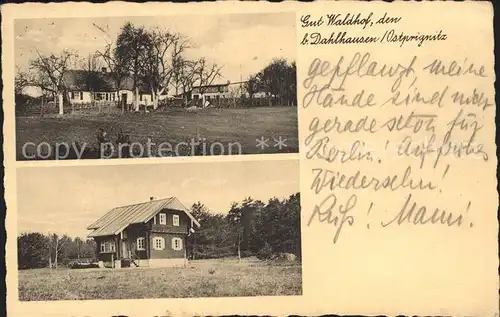 Gut Waldhof, den
b. Dahlhausen / Ostprignitz
gepflanzt, meine
Hände sind nicht
gerade schön für
Berlin! Auf
Wiedersehn!
Kuß! Mami!
copyright